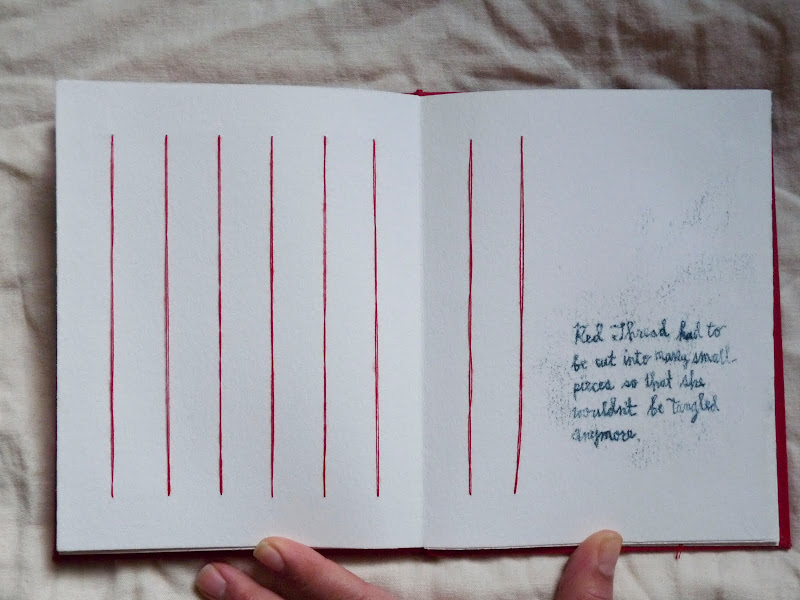 Red Thread had to
be cut into many small
pieces so that she
wouldn't be tangled
anymore.